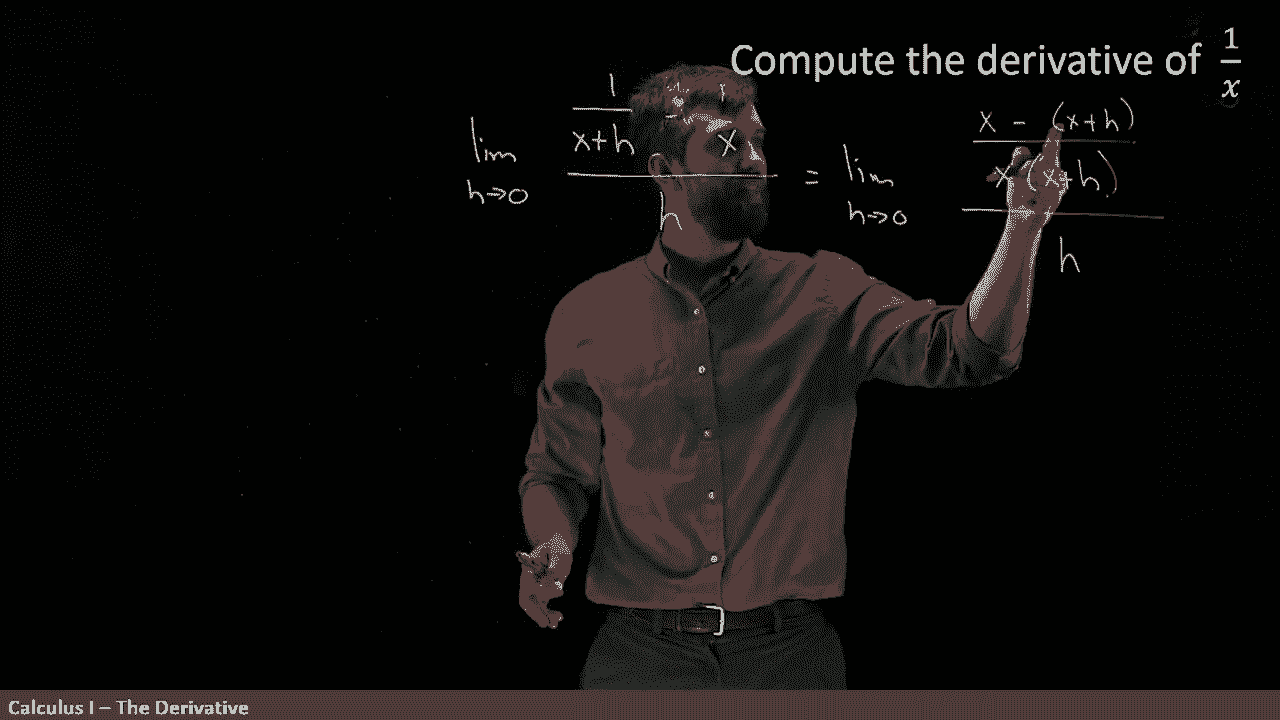 Compute the derivative of 1/x
lim h→0 (1/(x+h) - 1/x)/h = lim h→0 ((x - (x+h))/(x (x+h)))/h
Calculus I – The Derivative